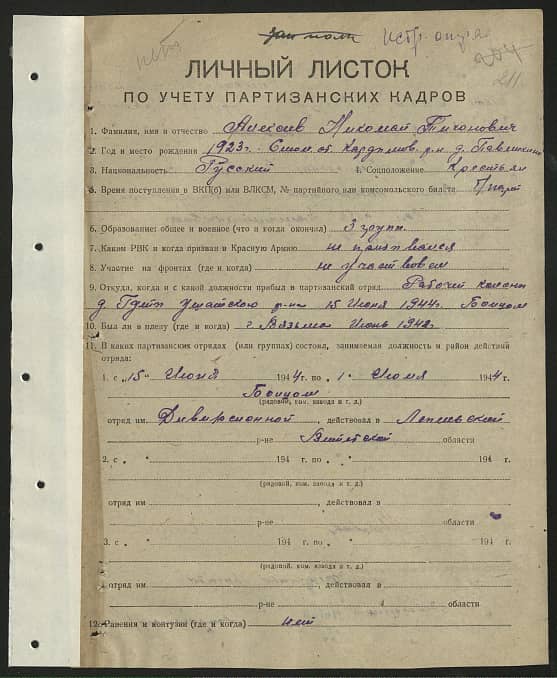 Истр. отря
ЛИЧНЫЙ ЛИСТОК
ПО УЧЕТУ ПАРТИЗАНСКИХ КАДРОВ
1. Фамилия, имя и отчество Алексеев Николай Тихонович
2. Год и место рождения 1923 г. Смол. об. Кардымов. р-н д. Павлихино
3. Национальность Русский 4. Соцположение Крестьян
5. Время поступления в ВКП(б) или ВЛКСМ, № партийного или комсомольского билета б/парт
6. Образование: общее и военное (что и когда окончил) 3 групп.
7. Каким РВК и когда призван в Красную Армию не призывался
8. Участие на фронтах (где и когда) не участвовал
9. Откуда, когда и с какой должности прибыл в партизанский отряд Рабочей колоны
д. Ушатского р-на 15 Июня 1944 г. Бойцом
10. Был ли в плену (где и когда) г. Вязьма Июнь 1942 г.
11. В каких партизанских отрядах (или группах) состоял, занимаемая должность и район действий
отряда:
1. с „15" Июня 1944 г. по „1" Июля 1944 г.
Бойцом
(рядовой, ком. взвода и т. д.)
отряд им Диверсионной, действовал в Лепельской
р-не Витебской области
2. с „ " 194 г. по „ " 194 г.
(рядовой, ком. взвода и т. д.)
отряд им , действовал в
р-не области
3. с „ " 194 г. по „ " 194 г.
(рядовой, ком. взвода и т. д.)
отряд им , действовал в
р-не области
12. Ранения и контузии (где и когда) нет